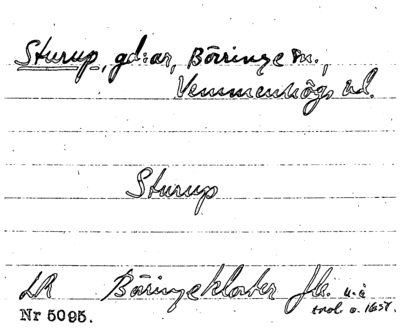 Sturup, gd:ar, Börringe sn.,
Vemmenhögs hd.
Sturup
LR Böringekloster fk. u.å
trol. o. 1651.
Nr 5095.